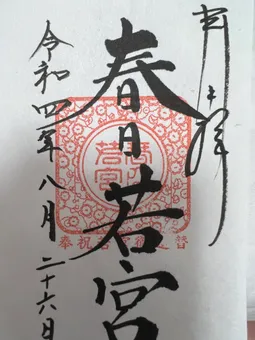 奉拝
春日若宮
令和四年八月二十六日
若宮
奉祝
替